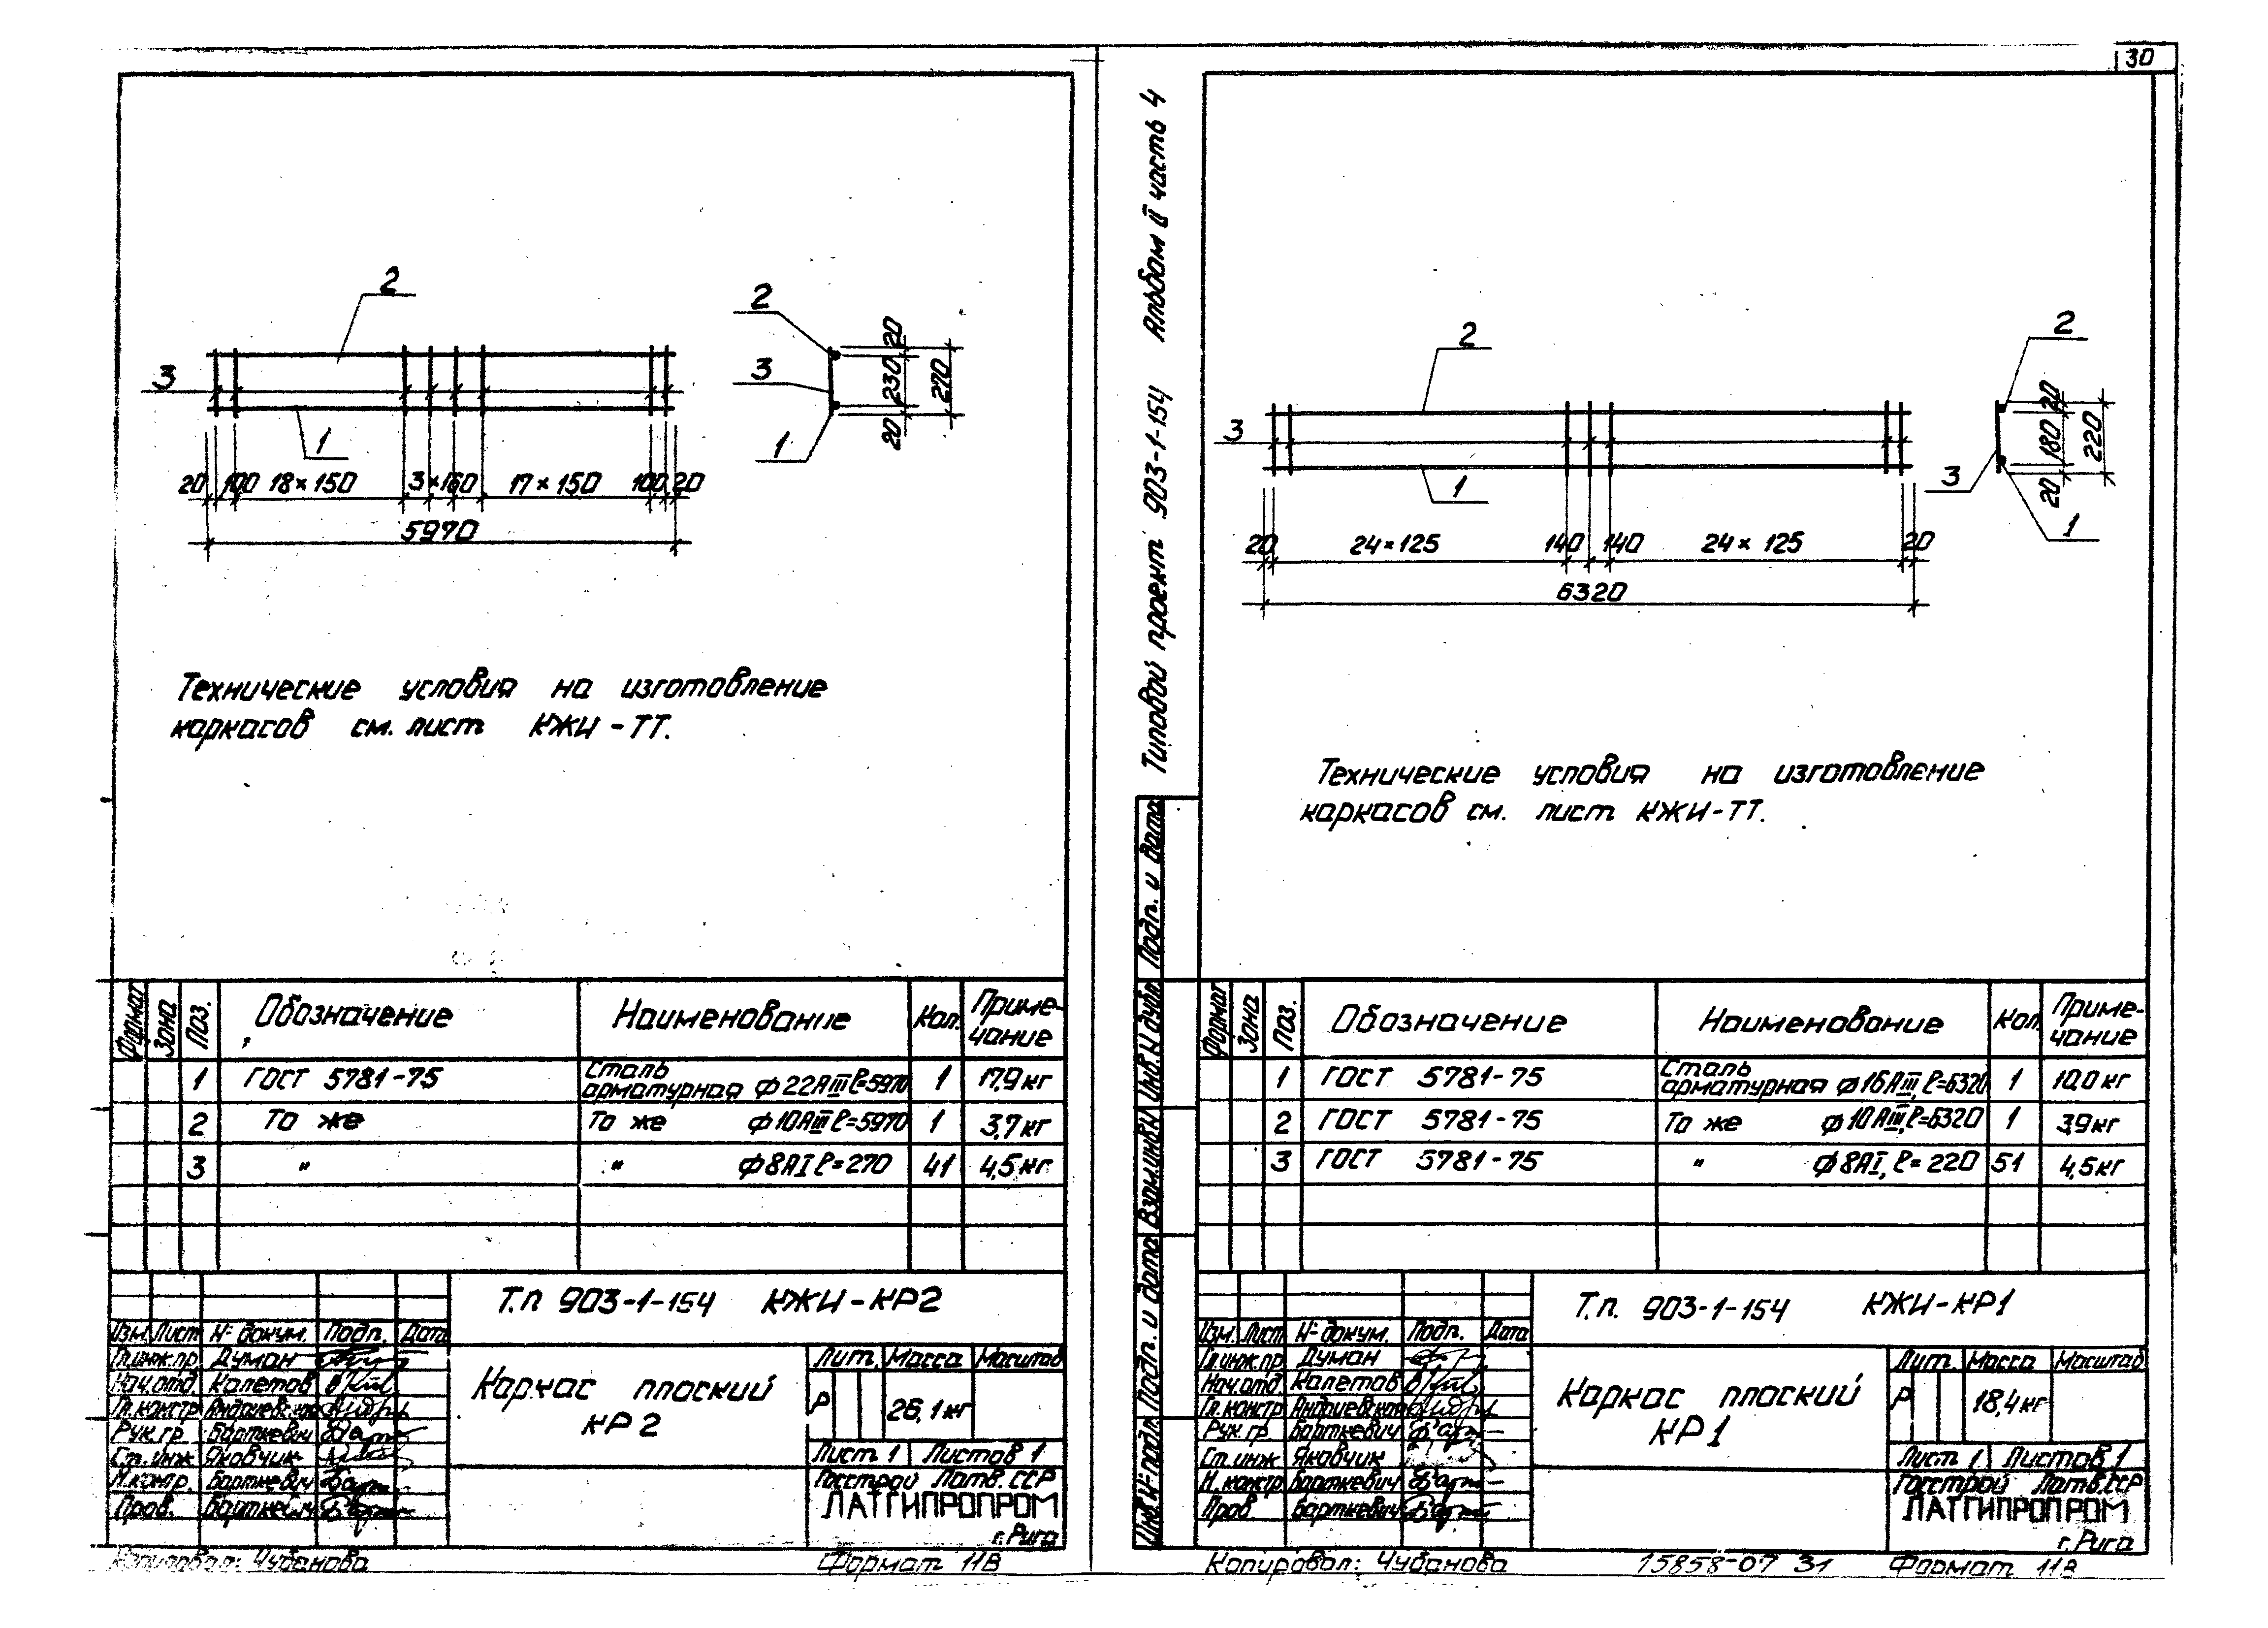 30
2
2
3
3
1
1
20
230
270
20
20 100 18×150 3×160 17×150 100 20
5970
Технические условия на изготовление
каркасов см. лист КЖИ-ТТ.
Формат
Зона
Поз.
Обозначение
Наименование
Кол.
Приме-
чание
1 ГОСТ 5781-75 Сталь
арматурная ф22АIII ℓ=5970 1 17,9 кг
2 То же То же ф10АIII ℓ=5970 1 3,7 кг
3 " " ф8АI ℓ=270 41 4,5 кг
Т.П 903-1-154 КЖИ-КР2
Изм. Лист № докум. Подп. Дата
Гл.инж.пр Думан
Нач.отд Калетов
Гл.констр Андриевская
Рук.гр. Барткевич
Ст.инж Яковчик
Н.контр. Барткевич
Пров. Барткевич
Каркас плоский
КР2
Лит. Масса Масштаб
Р 26,1 кг
Лист 1 Листов 1
Госстрой Латв.ССР
ЛАТГИПРОПРОМ
г.Рига
Копировал: Чубанова Формат 11В
Типовой проект 903-1-154 Альбом II часть 4
2
2
3
3
1
1
20
180
220
20
20 24×125 140 140 24×125 20
6320
Технические условия на изготовление
каркасов см. лист КЖИ-ТТ.
Инв.№ подл. Подп. и дата Взам.инв.№ Инв.№ дубл. Подп. и дата
Формат
Зона
Поз.
Обозначение
Наименование
Кол.
Приме-
чание
1 ГОСТ 5781-75 Сталь
арматурная ф16АIII, ℓ=6320 1 10,0 кг
2 ГОСТ 5781-75 То же ф10АIII, ℓ=6320 1 3,9 кг
3 ГОСТ 5781-75 " ф8АI, ℓ=220 51 4,5 кг
Т.п. 903-1-154 КЖИ-КР1
Изм. Лист № докум. Подп. Дата
Гл.инж.пр Думан
Нач.отд Калетов
Гл.констр Андриевская
Рук.гр. Барткевич
Ст.инж Яковчик
Н.констр Барткевич
Пров. Барткевич
Каркас плоский
КР1
Лит. Масса Масштаб
Р 18,4 кг
Лист 1 Листов 1
Госстрой Латв.ССР
ЛАТГИПРОПРОМ
г.Рига
Копировал: Чубанова 15858-07 31 Формат 11В